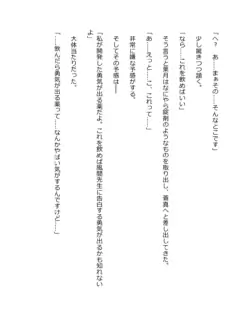 「へ？　あ……まぁその……そんなとこです」
少し驚きつつ頷く。
「なら……これを飲めばいい」
そう言うと葉月はなにやら錠剤のようなものを取り出し、亜真へと差し出してきた。
「あ……えっと……こ、これって……」
非常に嫌な予感がする。
そしてその予感は――
「私が開発した勇気が出る薬だよ。これを飲めば風間先生に告白する勇気が出るかも知れない
よ」
大体当たりだった。
「……飲んだら勇気が出る薬って……なんかやばい気がするんですけど……」